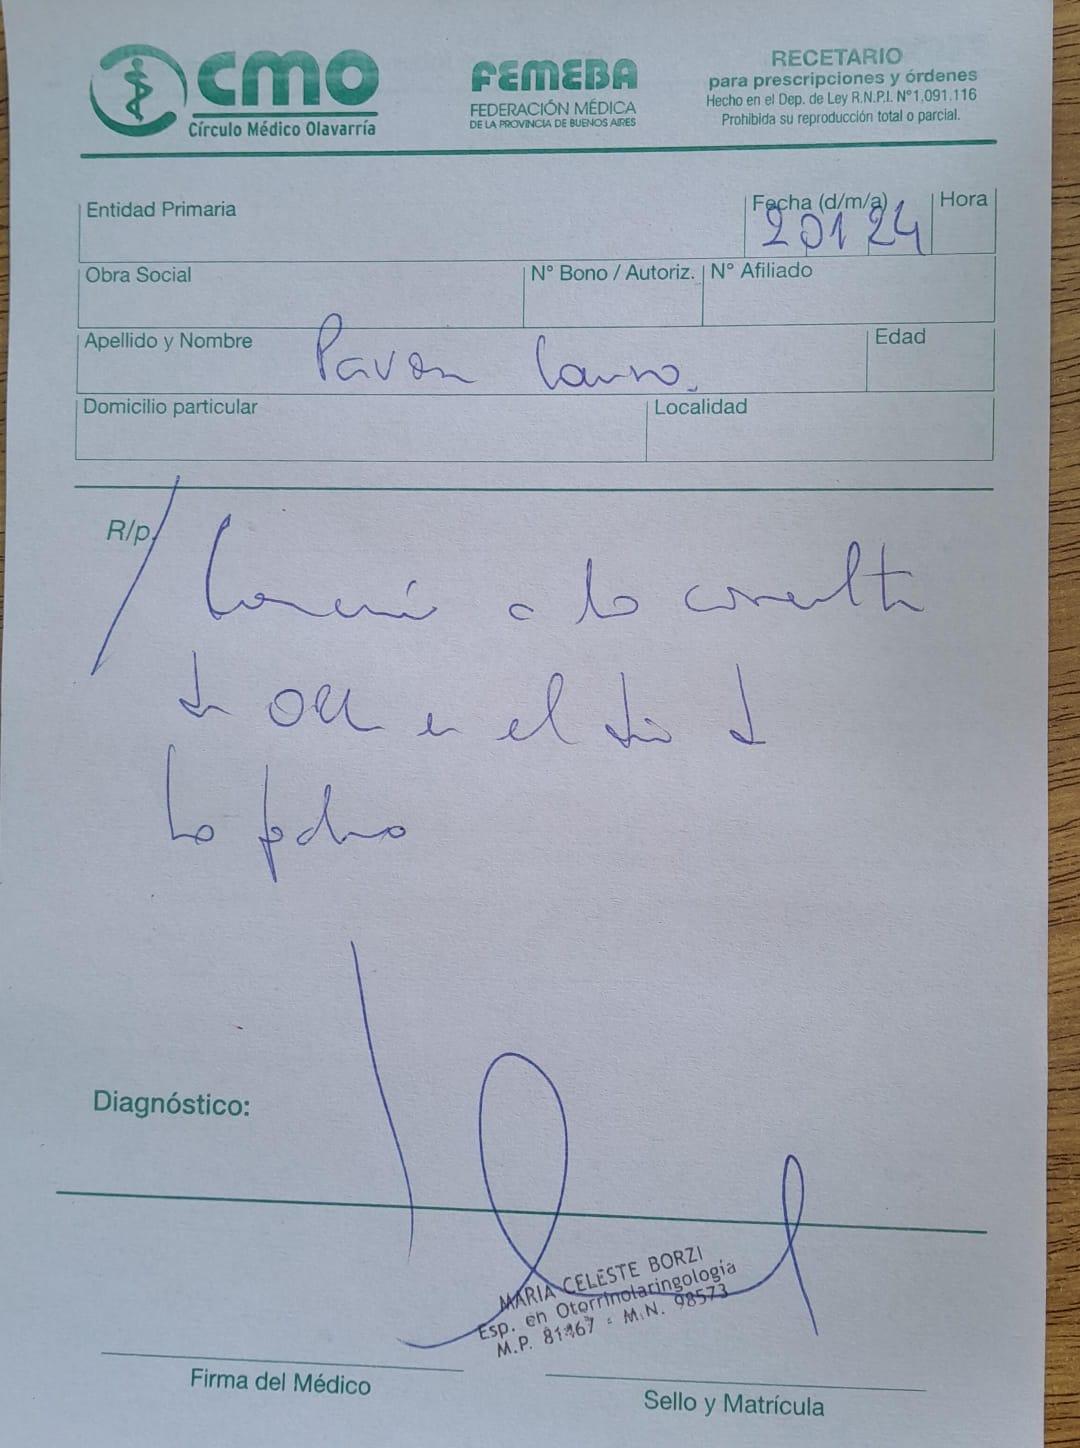 CMO
Círculo Médico Olavarría
FEMEBA
FEDERACIÓN MÉDICA
DE LA PROVINCIA DE BUENOS AIRES
RECETARIO
para prescripciones y órdenes
Hecho en el Dep. de Ley R.N.P.I. N°1,091.116
Prohibida su reproducción total o parcial.
Entidad Primaria
Fecha (d/m/a)
20 1 24
Hora
Obra Social
N° Bono / Autoriz.
N° Afiliado
Apellido y Nombre
Pavon
Edad
Domicilio particular
Localidad
R/p.
a la consulta
de ORL en el día d
la fecha
Diagnóstico:
MARIA CELESTE BORZI
Esp. en Otorrinolaringología
M.P. 81467 - M.N. 98573
Firma del Médico
Sello y Matrícula